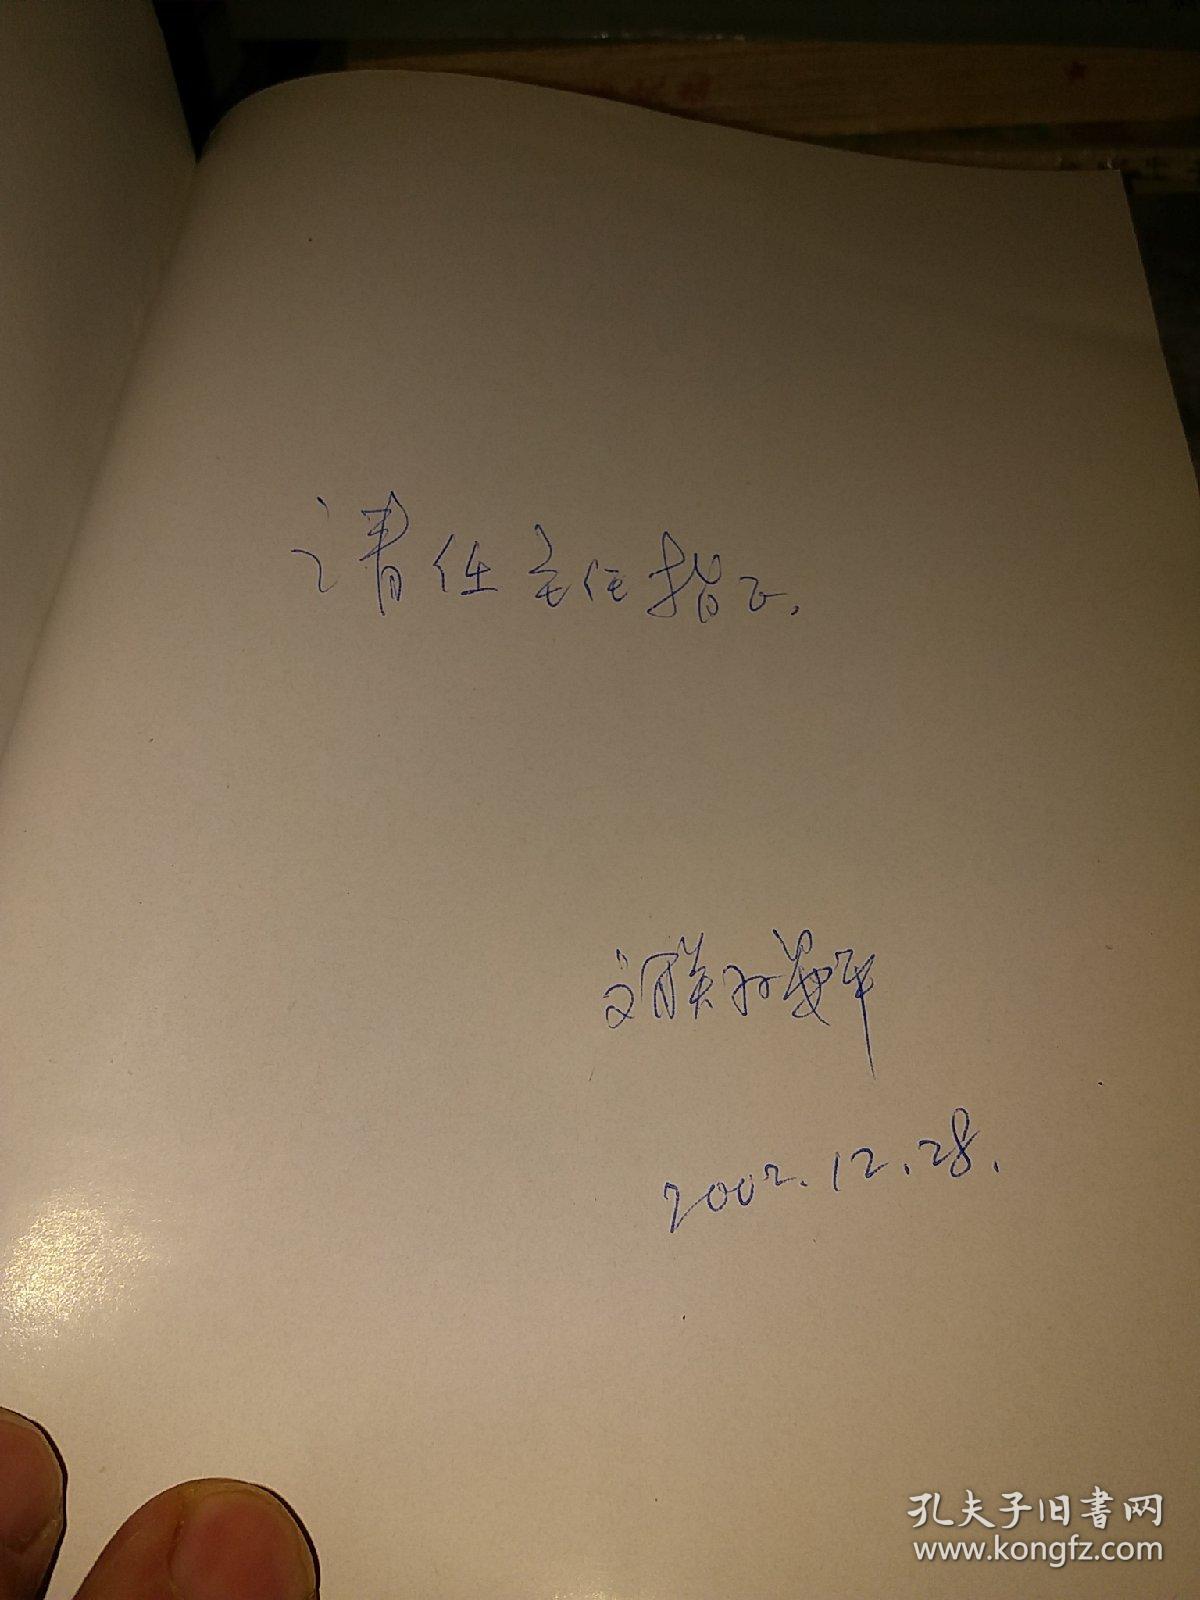 请任主任指正.
文联孙
2002.12.28.
孔夫子旧书网
www.kongfz.com